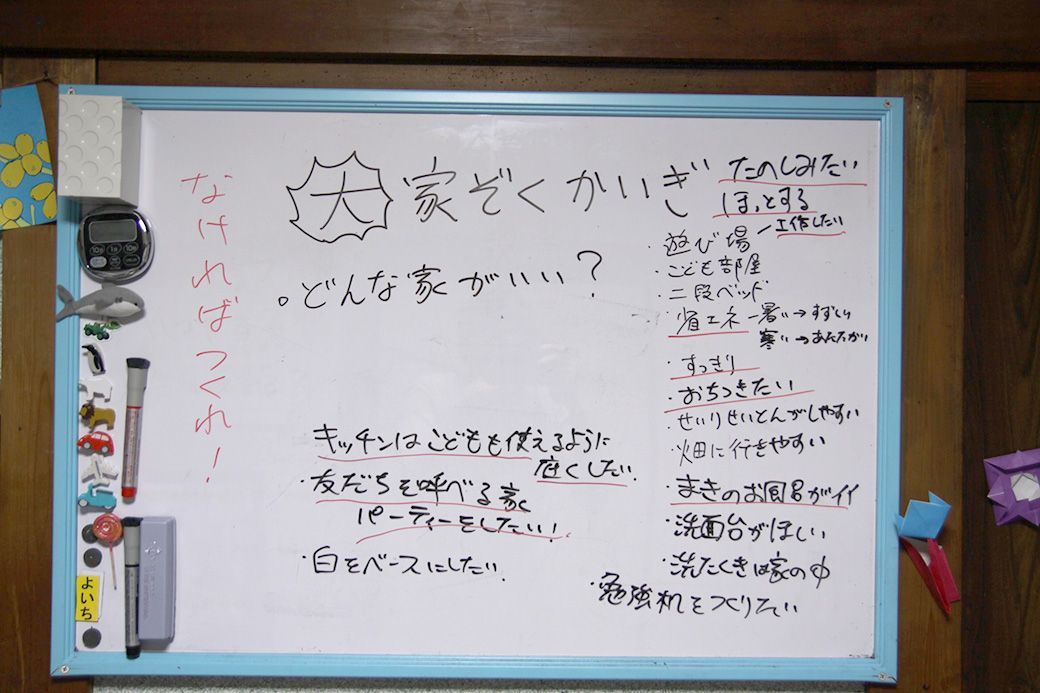 なければつくれ！
大家ぞくかいぎ
。どんな家がいい？
キッチンはこどもも使えるように
広くしたい
・友だちを呼べる家
パーティーをしたい！
・白をベースにしたい
たのしみたい
ほっとする
・遊び場 ー工作したい
・こども部屋
・二段ベッド
・省エネ ー暑い→すずしい
寒い→あたたかい
・すっきり
・おちつきたい
・せいりせいとんがしやすい
・畑に行きやすい
・まきのお風呂がイイ
・洗面台がほしい
・洗たくきは家の中
・勉強机をつくりたい
よいち